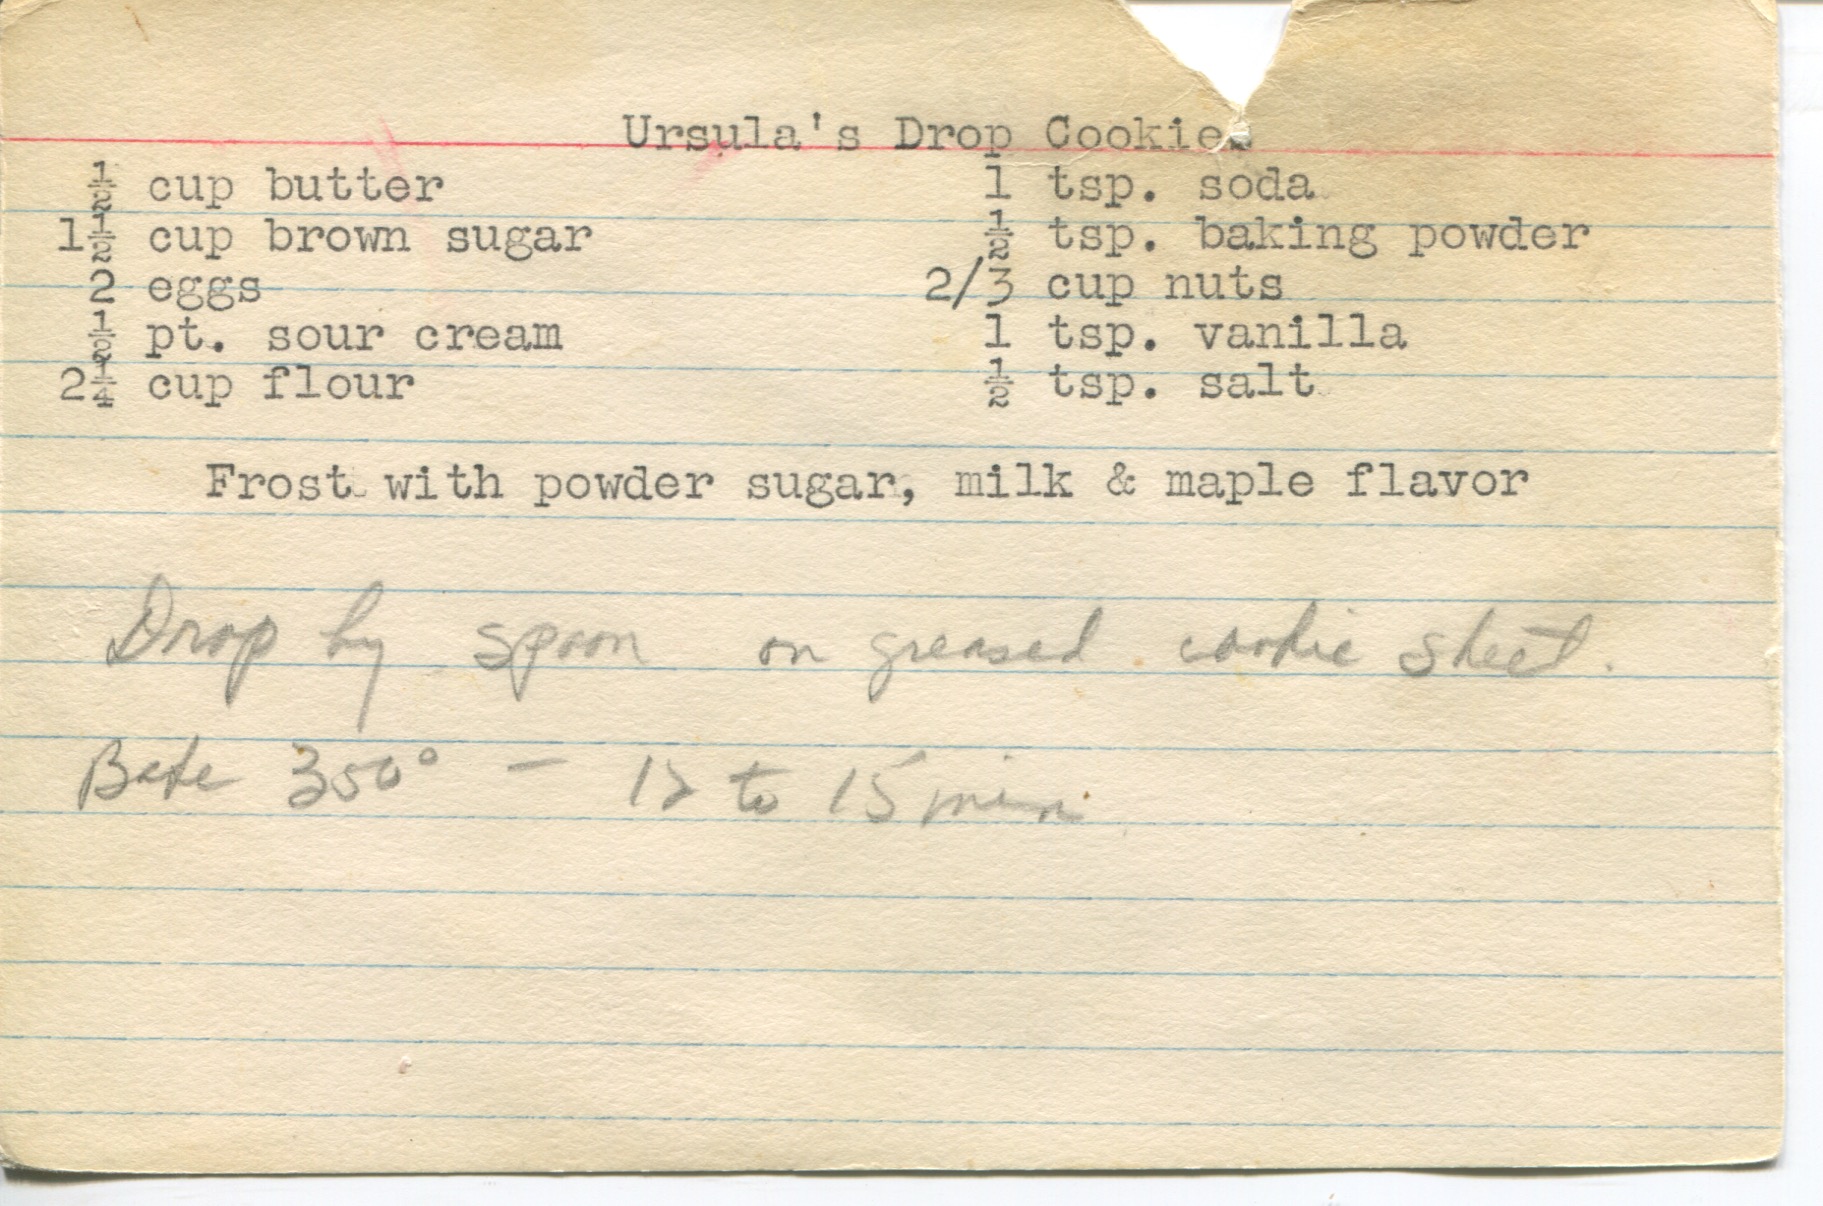 Ursula's Drop Cookies
½ cup butter 1 tsp. soda
1½ cup brown sugar ½ tsp. baking powder
2 eggs 2/3 cup nuts
½ pt. sour cream 1 tsp. vanilla
2¼ cup flour ½ tsp. salt
Frost with powder sugar, milk & maple flavor
Drop by spoon on greased cookie sheet.
Bake 350° — 12 to 15 min